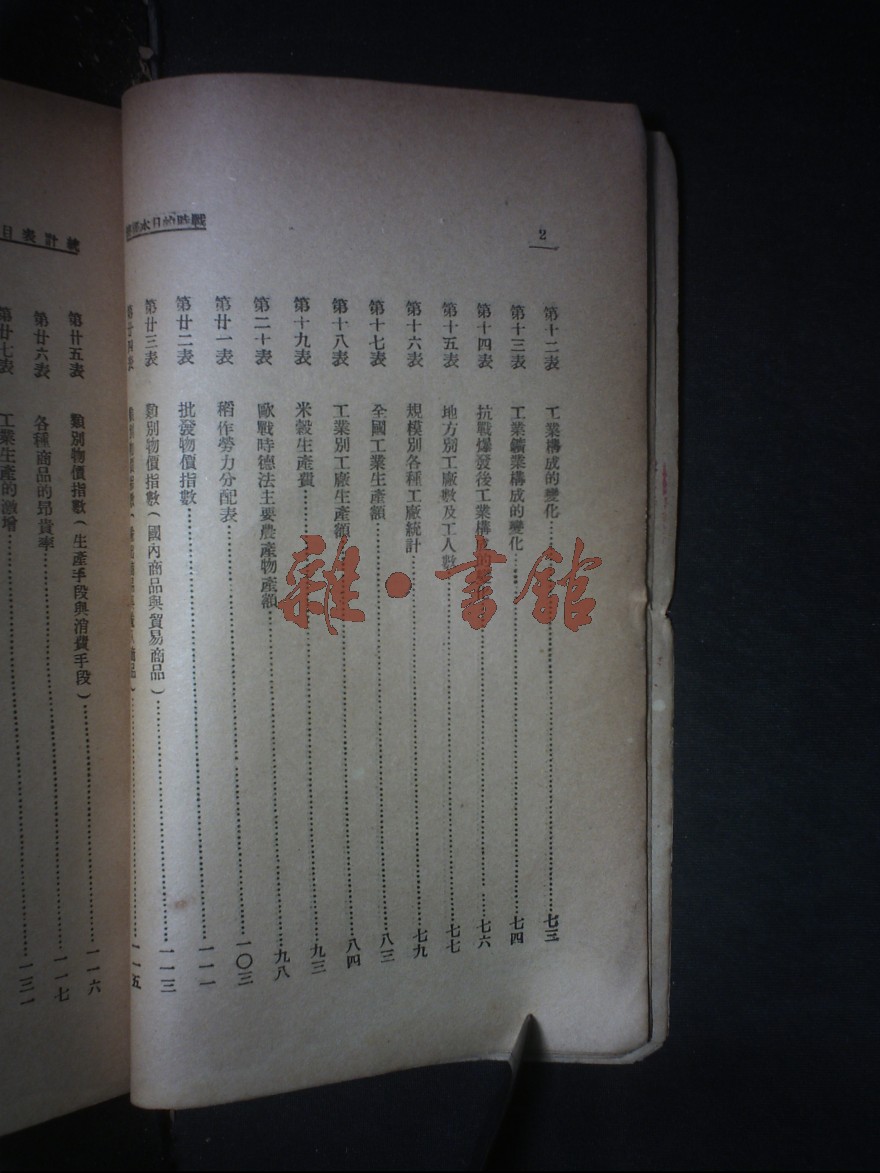 2
戰時的日本經濟
第十二表 工業構成的變化……七三
第十三表 工業鑛業構成的變化……七四
第十四表 抗戰爆發後工業構成的變化……七六
第十五表 地方別工廠數及工人數……七七
第十六表 規模別各種工廠統計……七九
第十七表 全國工業生產額……八三
第十八表 工業別工廠生產額……八四
第十九表 米穀生產費……九三
第二十表 歐戰時德法主要農產物產額……九八
第廿一表 稻作勞力分配表……一〇三
第廿二表 批發物價指數……一一一
第廿三表 類別物價指數(國內商品與貿易商品)……一一三
第廿四表 商品)……一一五
統計表目
第廿五表 類別物價指數(生產手段與消費手段)……一一六
第廿六表 各種商品的昂貴率……一一七
第廿七表 工業生產的激增……一三一
雜·書館